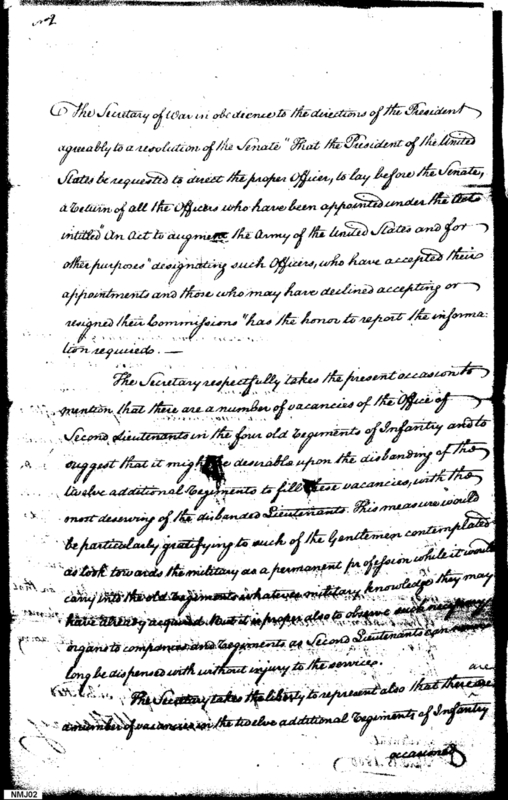 The Secretary of War in obedience to the directions of the President
agreably to a resolution of the Senate "That the President of the United
States be requested to direct the proper Officer, to lay before the Senate,
a Return of all the Officers who have been appointed under the Act
intitled "An Act to augment the Army of the United States and for
other purposes" designating such Officers, who have accepted their
appointments and those who may have declined accepting or
resigned their Commissions" has the honor to report the informa-
tion required. —
The Secretary respectfully takes the present occasion to
mention that there are a number of vacancies of the Office of
Second Lieutenants in the four old Regiments of Infantry and to
suggest that it might be desirable upon the disbanding of the
twelve additional Regiments to fill these vacancies, with the
most deserving of the disbanded Lieutenants. This measure would
be particularly gratifying to such of the Gentlemen contemplated
as look towards the military as a permanent profession while it would
carry into the old Regiments whatever military knowledge they may
have already acquired. But it is proper also to observe such necessary
organs to companies and Regiments as Second Lieutenants can
long be dispensed with without injury to the service.
The Secretary takes the liberty to represent also that there are
a number of vacancies in the twelve additional Regiments of Infantry
occasioned
NMJ02